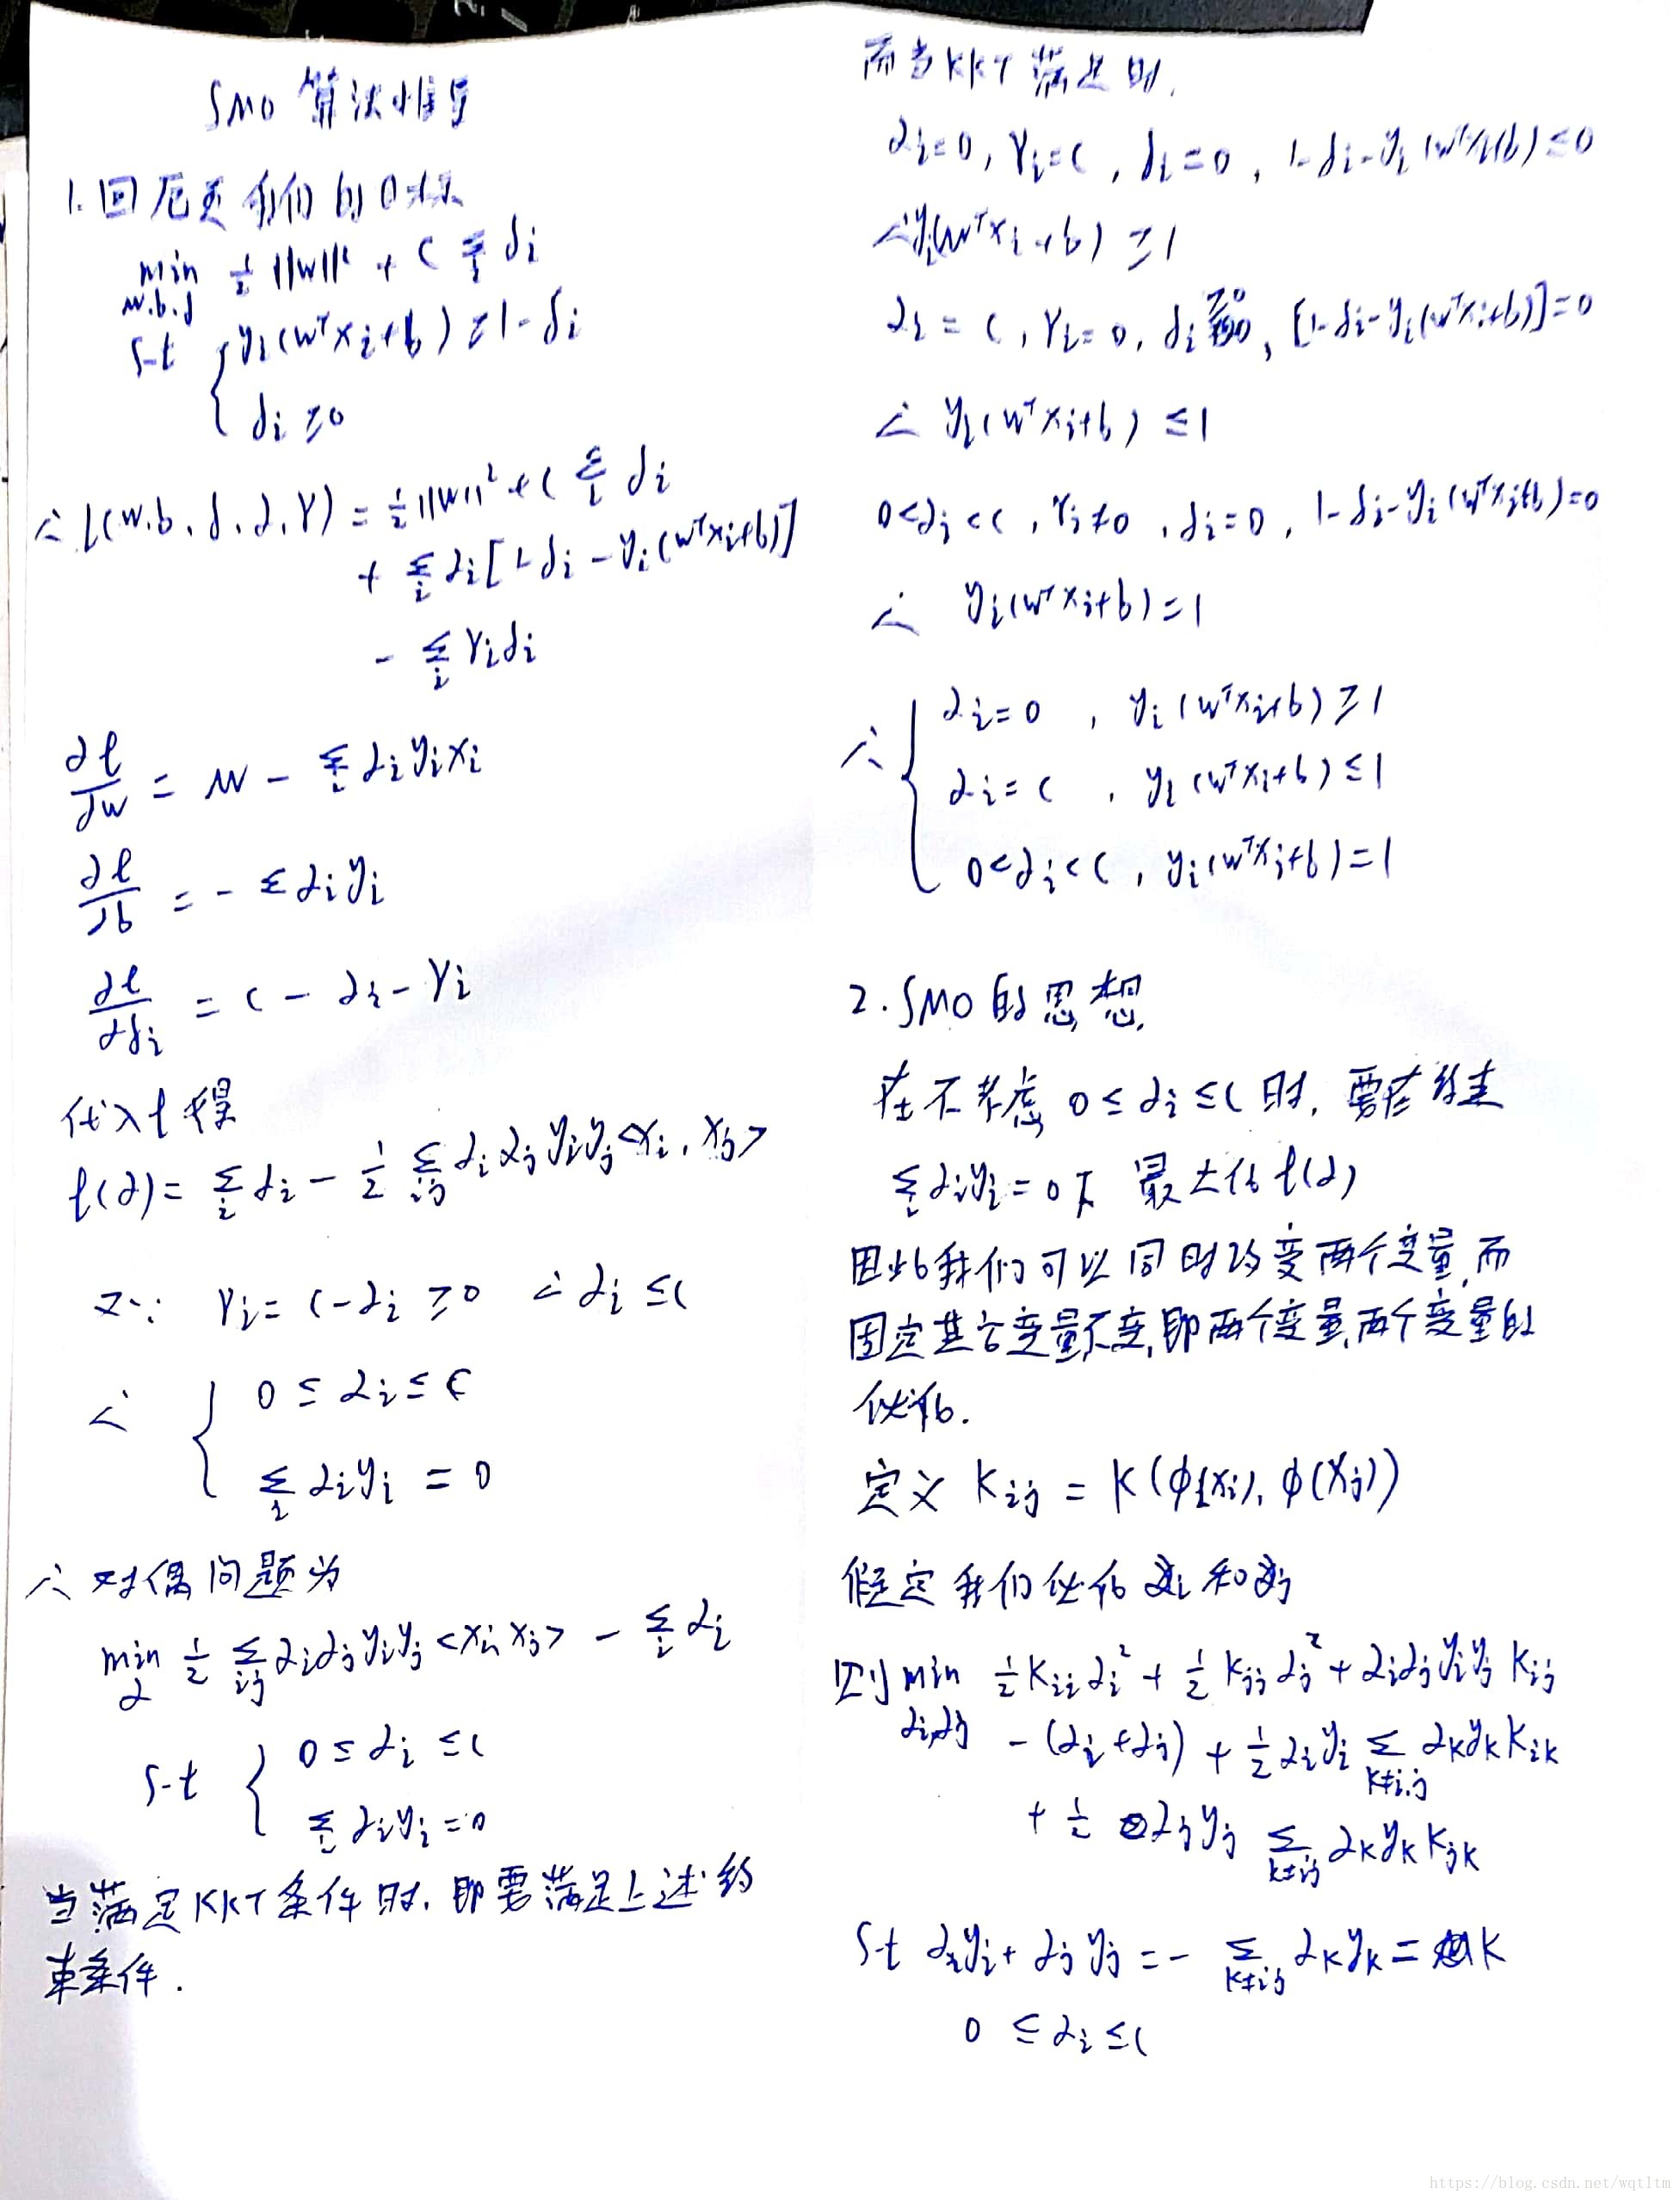 SMO 算法推导
1.回顾 我们的目标
min 1/2 ||w||² + C Σ_i δi
w.b.δ
s.t { yi(wᵀxi+b) ≥ 1-δi
δi ≥ 0
∴ L(w.b.δ.α.γ) = 1/2 ||w||² + C Σ_i δi
+ Σ_i αi[1-δi-yi(wᵀxi+b)]
- Σ_i γiδi
∂ℓ/∂w = w - Σ_i αiyixi
∂ℓ/∂b = - Σαiyi
∂ℓ/∂δi = C - αi - γi
代入ℓ得
ℓ(α) = Σ_i αi - 1/2 Σ_ij αiαjyiyj<xi, xj>
又∵ γi = C-αi ≥ 0 ∴ αi ≤ C
∴ { 0 ≤ αi ≤ C
Σ_i αiyi = 0
∴ 对偶问题为
min_α 1/2 Σ_ij αiαjyiyj<xi, xj> - Σ_i αi
s.t { 0 ≤ αi ≤ C
Σ_i αiyi = 0
当满足KKT条件时, 即要满足上述约
束条件.
而当KKT满足时,
αi=0, γi=C, δi=0, 1-δi-yi(wᵀxi+b) ≤ 0
∴ yi(wᵀxi+b) ≥ 1
αi = C, γi=0, δi ≥0, [1-δi-yi(wᵀxi+b)]=0
∴ yi(wᵀxi+b) ≤ 1
0<αi<C, γi≠0, δi=0, 1-δi-yi(wᵀxi+b)=0
∴ yi(wᵀxi+b)=1
∴ { αi=0, yi(wᵀxi+b) ≥ 1
αi=C, yi(wᵀxi+b) ≤ 1
0<αi<C, yi(wᵀxi+b)=1
2.SMO的思想
在不考虑 0 ≤ αi ≤ C 时, 要在
Σ_i αiyi=0下 最大化 ℓ(α)
因此我们可以同时改变两个变量,而
固定其它变量不变,即两个变量,两个变量的
优化.
定义 Kij = K(φ(xi), φ(xj))
假定我们优化 αi 和 αj
则 min 1/2 Kiiαi² + 1/2 Kjjαj² + αiαjyiyj Kij
αi,αj - (αi+αj) + 1/2 αiyi Σ_{k≠i,j} αkykKik
+ 1/2 αjyj Σ_{k≠ij} αkykKjk
s.t αiyi + αjyj = - Σ_{k≠ij} αkyk = K
0 ≤ αi ≤ C
https://blog.csdn.net/wqtltm